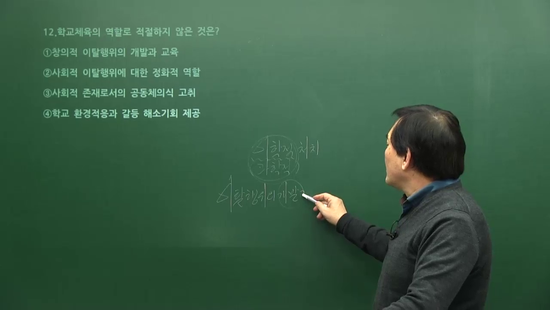 12,학교체육의 역할로 적절하지 않은 것은?
①창의적 이탈행위의 개발과 교육
②사회적 이탈행위에 대한 정화적 역할
③사회적 존재로서의 공동체의식 고취
④학교 환경적응과 갈등 해소기회 제공
의학적 처치
의학적
이탈행위의 개발